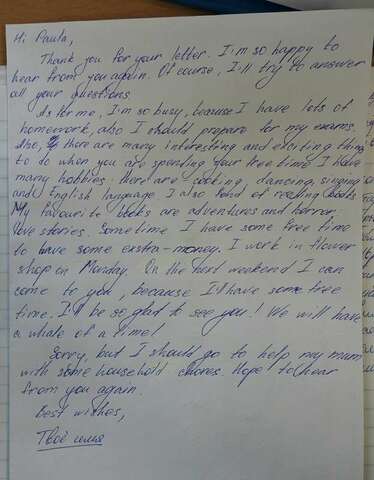 Hi Paula,
Thank you for your letter. I'm so happy to
hear from you again. Of course, I'll try to answer
all your questions
As for me, I'm so busy, because I have lots of
homework, also I should prepare for my exams.
Also, there are many interesting and exciting thing
to do when you are spending your free time. I have
many hobbies: there are cooking, dancing, singing
and English language. I also fond of reading books.
My favourite books are adventures and horror,
love stories. Sometime I have some free time
to have some exstra-money. I work in flower
shop on Monday. On the next weekend I can
come to you, because I'll have some free
time. I'll be so glad to see you! We will have
a whale of a time!
Sorry, but I should go to help my mum
with some household chores. Hope to hear
from you again.
Best wishes,
Твоё имя